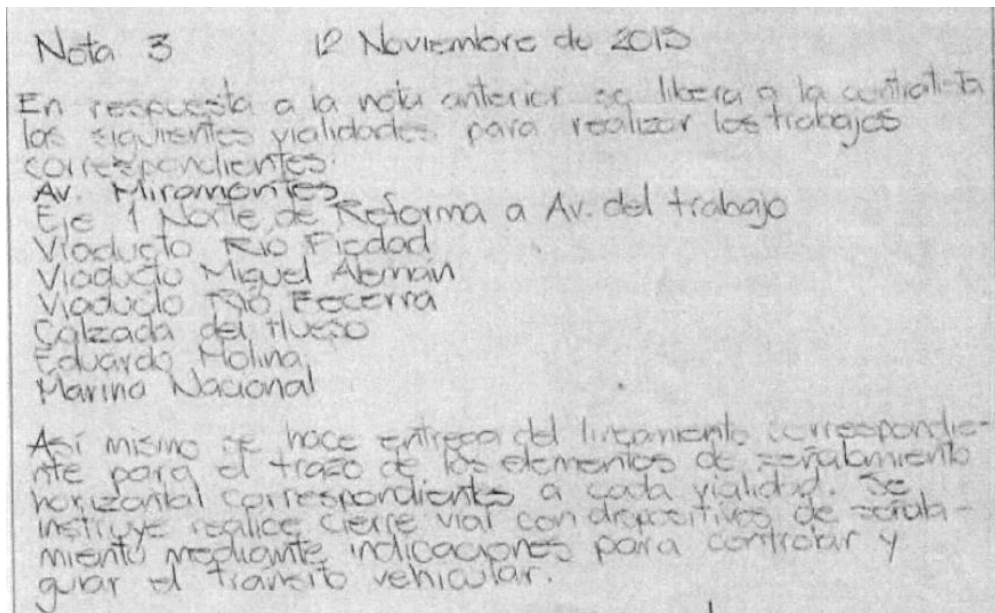 Nota 3 12 Noviembre de 2013
En respuesta a la nota anterior se libera a la contratista
las siguientes vialidades para realizar los trabajos
correspondientes:
Av. Miramontes
Eje 1 Norte de Reforma a Av. del trabajo
Viaducto Rio Piedad
Viaducto Miguel Aleman
Viaducto Rio Becerra
Calzada del Hueso
Eduardo Molina
Marina Nacional
Así mismo se hace entrega del lineamiento correspondie-
nte para el trazo de los elementos de señalamiento
horizontal correspondientes a cada vialidad. Se
instruye realice cierre vial con dispositivos de señala-
miento mediante indicaciones para controlar y
guiar el transito vehicular.